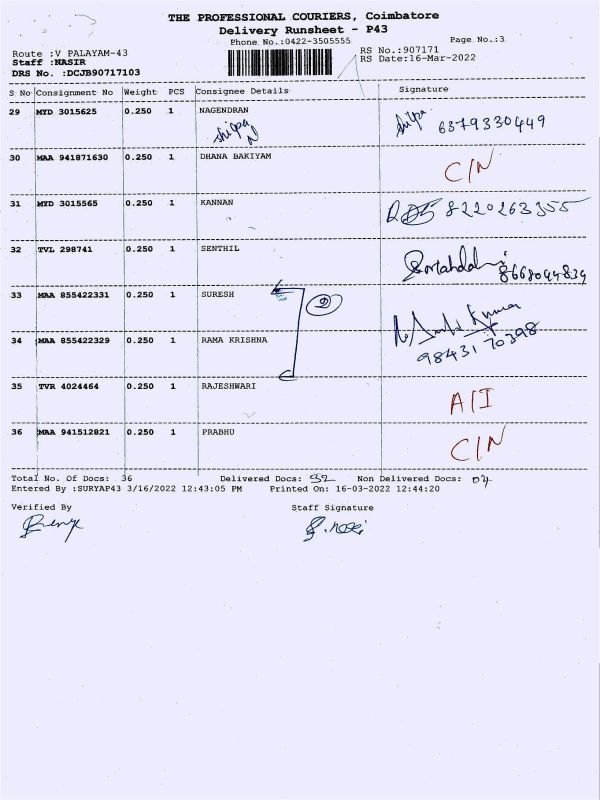 THE PROFESSIONAL COURIERS, Coimbatore
Delivery Runsheet - P43
Phone No.:0422-3505555 Page No.:3
Route :V PALAYAM-43 RS No.:907171
Staff :NASIR RS Date:16-Mar-2022
DRS No. :DCJB90717103
S No Consignment No Weight PCS Consignee Details Signature
29 MYD 3015625 0.250 1 NAGENDRAN shilpa 6379330449
shilpa N
30 MAA 941871630 0.250 1 DHANA BAKIYAM C/N
31 MYD 3015565 0.250 1 KANNAN 8220263355
32 TVL 298741 0.250 1 SENTHIL 8668094839
33 MAA 855422331 0.250 1 SURESH 2
34 MAA 855422329 0.250 1 RAMA KRISHNA Kumar
98431 70398
35 TVR 4024464 0.250 1 RAJESHWARI A/I
36 MAA 941512821 0.250 1 PRABHU C/N
Total No. Of Docs: 36 Delivered Docs: 32 Non Delivered Docs: 04
Entered By :SURYAP43 3/16/2022 12:43:05 PM Printed On: 16-03-2022 12:44:20
Verified By Staff Signature